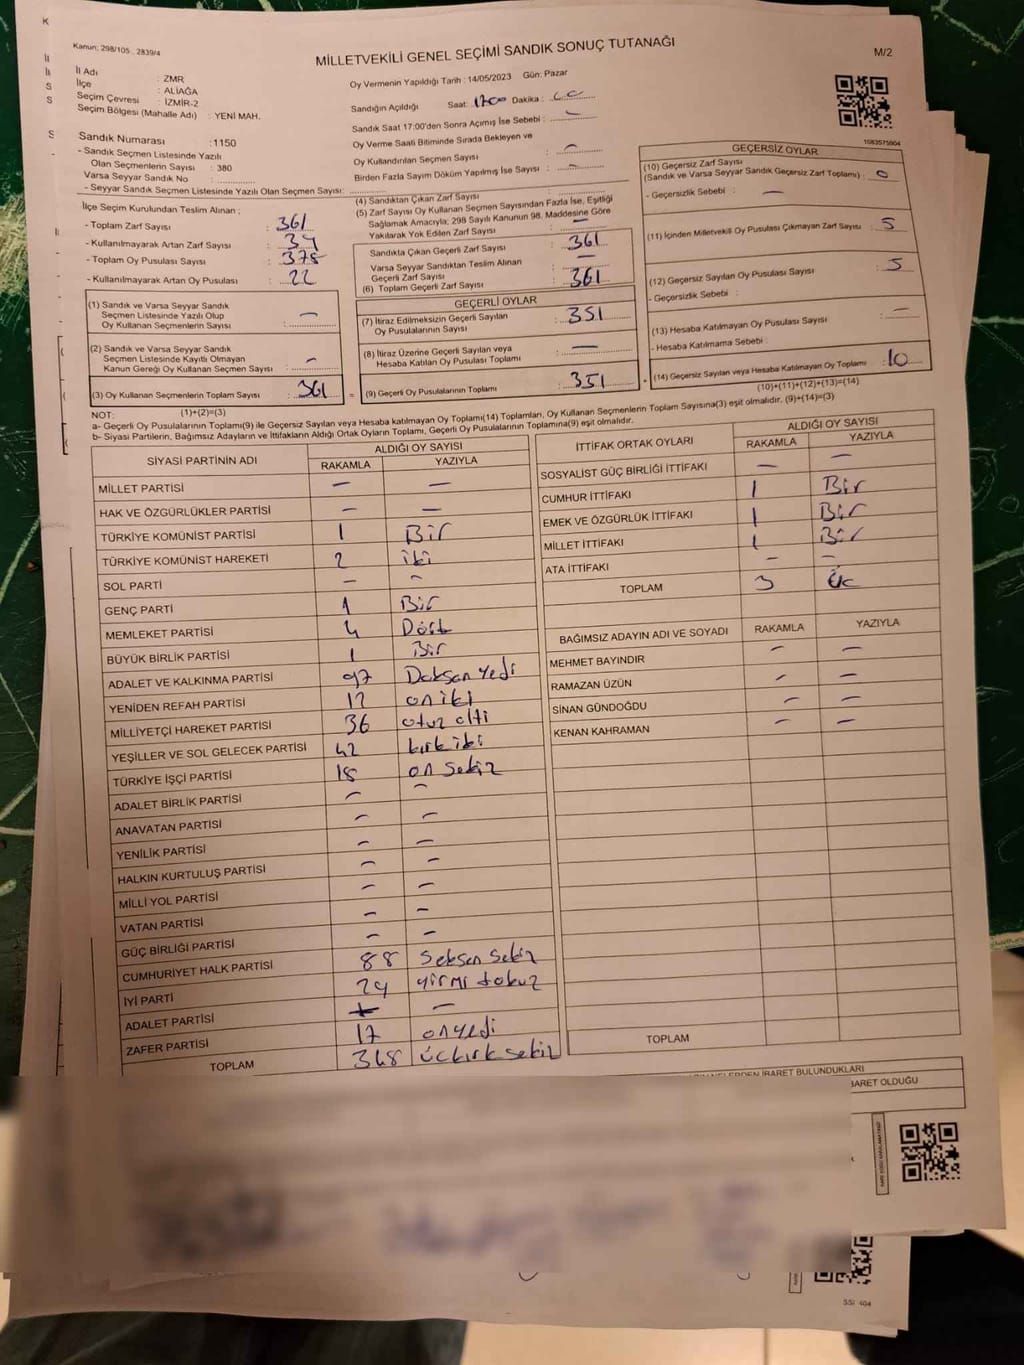 Kanun: 298/105 , 2839/4
MİLLETVEKİLİ GENEL SEÇİMİ SANDIK SONUÇ TUTANAĞI
M/2
İl Adı : ZMR
İlçe : ALİAĞA
Seçim Çevresi : İZMİR-2
Seçim Bölgesi (Mahalle Adı) : YENİ MAH.
Oy Vermenin Yapıldığı Tarih : 14/05/2023 Gün: Pazar
Sandığın Açıldığı Saat: 17:00 Dakika :
Sandık Saat 17:00'den Sonra Açımış İse Sebebi : -
Oy Verme Saati Bitiminde Sırada Bekleyen ve
Oy Kullandırılan Seçmen Sayısı : -
Birden Fazla Sayım Döküm Yapılmış İse Sayısı : -
1583575904
Sandık Numarası : 1150
- Sandık Seçmen Listesinde Yazılı
Olan Seçmenlerin Sayısı : 380
Varsa Seyyar Sandık No :
- Seyyar Sandık Seçmen Listesinde Yazılı Olan Seçmen Sayısı:
İlçe Seçim Kurulundan Teslim Alınan ;
- Toplam Zarf Sayısı : 361
- Kullanılmayarak Artan Zarf Sayısı : 34
- Toplam Oy Pusulası Sayısı : 378
- Kullanılmayarak Artan Oy Pusulası : 22
(1) Sandık ve Varsa Seyyar Sandık
Seçmen Listesinde Yazılı Olup
Oy Kullanan Seçmenlerin Sayısı : -
(2) Sandık ve Varsa Seyyar Sandık
Seçmen Listesinde Kayıtlı Olmayan
Kanun Gereği Oy Kullanan Seçmen Sayısı : -
(3) Oy Kullanan Seçmenlerin Toplam Sayısı : 361
(1)+(2)=(3)
(4) Sandıktan Çıkan Zarf Sayısı :
(5) Zarf Sayısı Oy Kullanan Seçmen Sayısından Fazla İse, Eşitliği
Sağlamak Amacıyla; 298 Sayılı Kanunun 98. Maddesine Göre
Yakılarak Yok Edilen Zarf Sayısı : -
Sandıkta Çıkan Geçerli Zarf Sayısı : 361
Varsa Seyyar Sandıktan Teslim Alınan
Geçerli Zarf Sayısı : -
(6) Toplam Geçerli Zarf Sayısı : 361
GEÇERLİ OYLAR
(7) İtiraz Edilmeksizin Geçerli Sayılan
Oy Pusulalarının Sayısı : 351
(8) İtiraz Üzerine Geçerli Sayılan veya
Hesaba Katılan Oy Pusulası Toplamı : -
= (9) Geçerli Oy Pusulalarının Toplamı : 351
GEÇERSİZ OYLAR
(10) Geçersiz Zarf Sayısı
(Sandık ve Varsa Seyyar Sandık Geçersiz Zarf Toplamı) : 0
- Geçersizlik Sebebi : -
(11) İçinden Milletvekili Oy Pusulası Çıkmayan Zarf Sayısı : 5
(12) Geçersiz Sayılan Oy Pusulası Sayısı : 5
- Geçersizlik Sebebi :
(13) Hesaba Katılmayan Oy Pusulası Sayısı : -
- Hesaba Katılmama Sebebi :
+ (14) Geçersiz Sayılan veya Hesaba Katılmayan Oy Toplamı : 10
(10)+(11)+(12)+(13)=(14)
NOT:
a- Geçerli Oy Pusulalarının Toplamı(9) ile Geçersiz Sayılan veya Hesaba katılmayan Oy Toplamı(14) Toplamları, Oy Kullanan Seçmenlerin Toplam Sayısına(3) eşit olmalıdır, (9)+(14)=(3)
b- Siyasi Partilerin, Bağımsız Adayların ve İttifakların Aldığı Ortak Oyların Toplamı, Geçerli Oy Pusulalarının Toplamına(9) eşit olmalıdır.
SİYASİ PARTİNİN ADI ALDIĞI OY SAYISI
RAKAMLA YAZIYLA
MİLLET PARTİSİ - -
HAK VE ÖZGÜRLÜKLER PARTİSİ - -
TÜRKİYE KOMÜNİST PARTİSİ 1 Bir
TÜRKİYE KOMÜNİST HAREKETİ 2 iki
SOL PARTİ - -
GENÇ PARTİ 1 Bir
MEMLEKET PARTİSİ 4 Dört
BÜYÜK BİRLİK PARTİSİ 1 Bir
ADALET VE KALKINMA PARTİSİ 97 Doksan yedi
YENİDEN REFAH PARTİSİ 12 on iki
MİLLİYETÇİ HAREKET PARTİSİ 36 otuz altı
YEŞİLLER VE SOL GELECEK PARTİSİ 42 kırk iki
TÜRKİYE İŞÇİ PARTİSİ 18 on sekiz
ADALET BİRLİK PARTİSİ - -
ANAVATAN PARTİSİ - -
YENİLİK PARTİSİ - -
HALKIN KURTULUŞ PARTİSİ - -
MİLLİ YOL PARTİSİ - -
VATAN PARTİSİ - -
GÜÇ BİRLİĞİ PARTİSİ - -
CUMHURİYET HALK PARTİSİ 88 seksen sekiz
İYİ PARTİ 29 yirmi dokuz
ADALET PARTİSİ - -
ZAFER PARTİSİ 17 on yedi
TOPLAM 348 üç kırk sekiz
İTTİFAK ORTAK OYLARI ALDIĞI OY SAYISI
RAKAMLA YAZIYLA
SOSYALİST GÜÇ BİRLİĞİ İTTİFAKI - -
CUMHUR İTTİFAKI 1 Bir
EMEK VE ÖZGÜRLÜK İTTİFAKI 1 Bir
MİLLET İTTİFAKI 1 Bir
ATA İTTİFAKI - -
TOPLAM 3 Üç
BAĞIMSIZ ADAYIN ADI VE SOYADI RAKAMLA YAZIYLA
MEHMET BAYINDIR - -
RAMAZAN ÜZÜN - -
SİNAN GÜNDOĞDU - -
KENAN KAHRAMAN - -
TOPLAM
İBARET BULUNDUKLARI
BARET OLDUĞU
SSİ 404